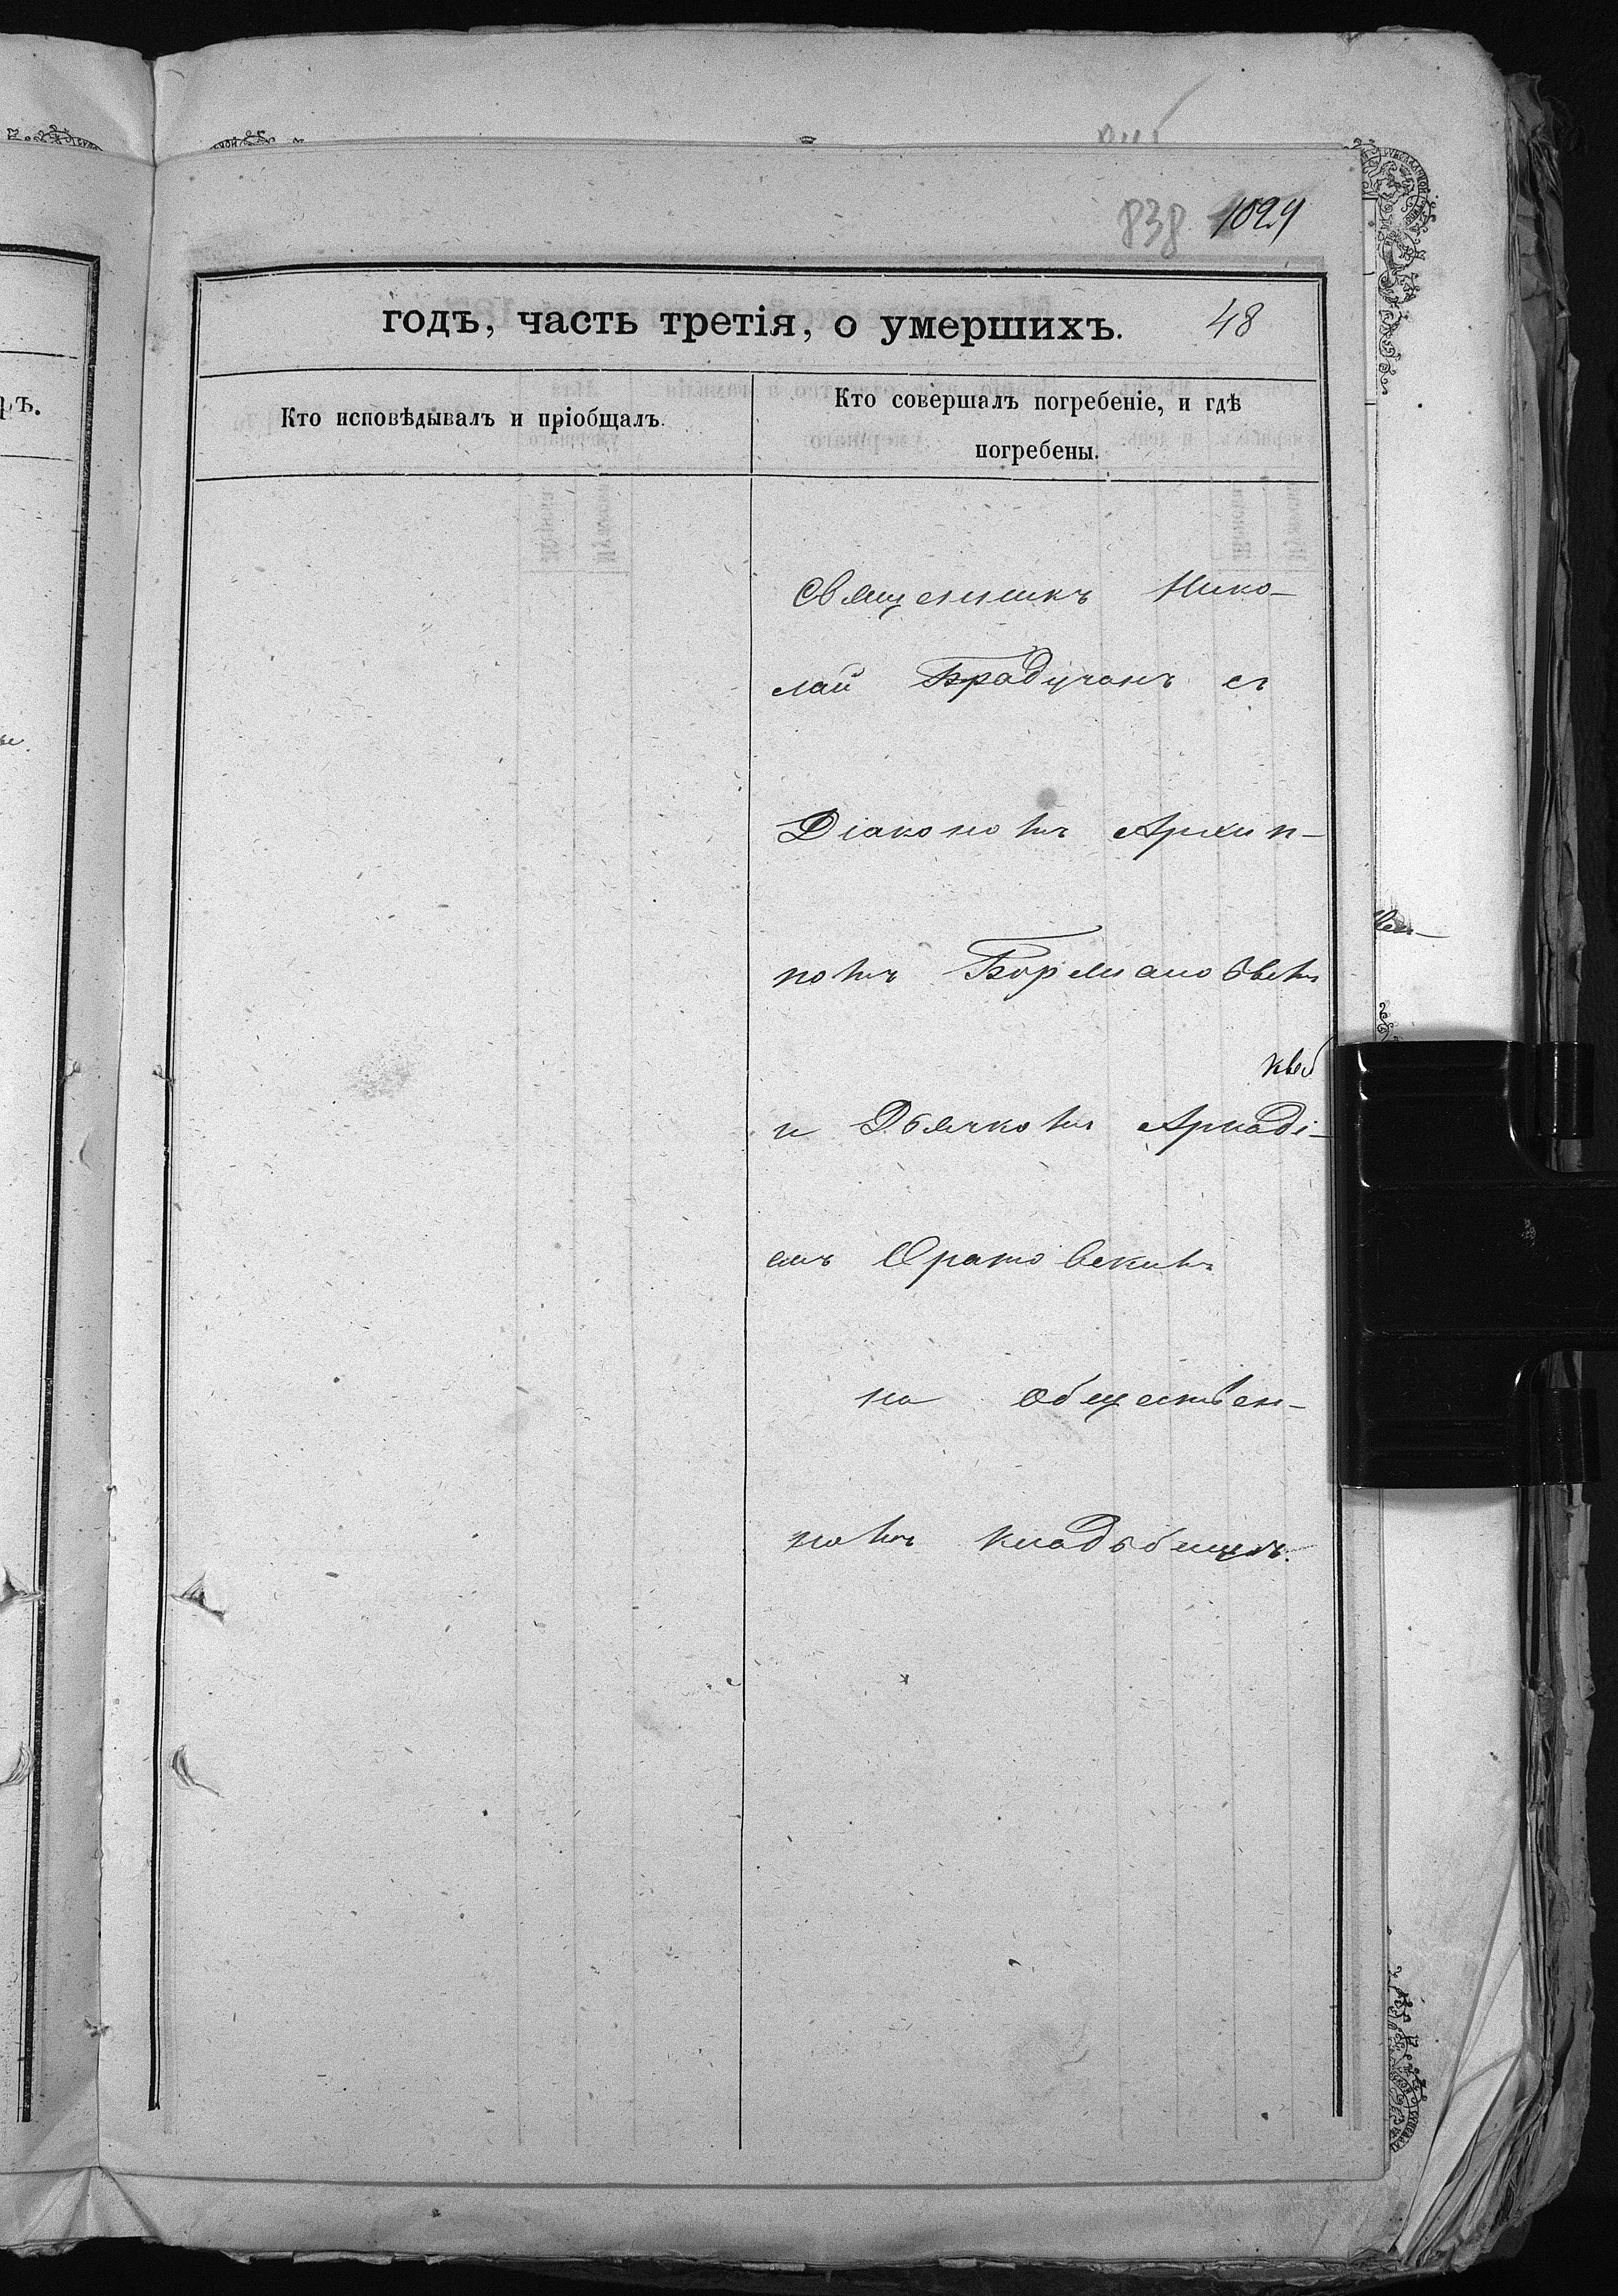 838 1029
годъ, часть третія, о умершихъ. 48
Кто исповѣдывалъ и пріобщалъ.
Кто совершалъ погребеніе, и гдѣ
погребены.
Священникъ Нико-
лай Брадучанъ съ
Діакономъ Архип-
помъ
и Дьячкомъ Аркаді-
емъ Оратовскимъ
на обществен-
номъ кладьбищѣ.